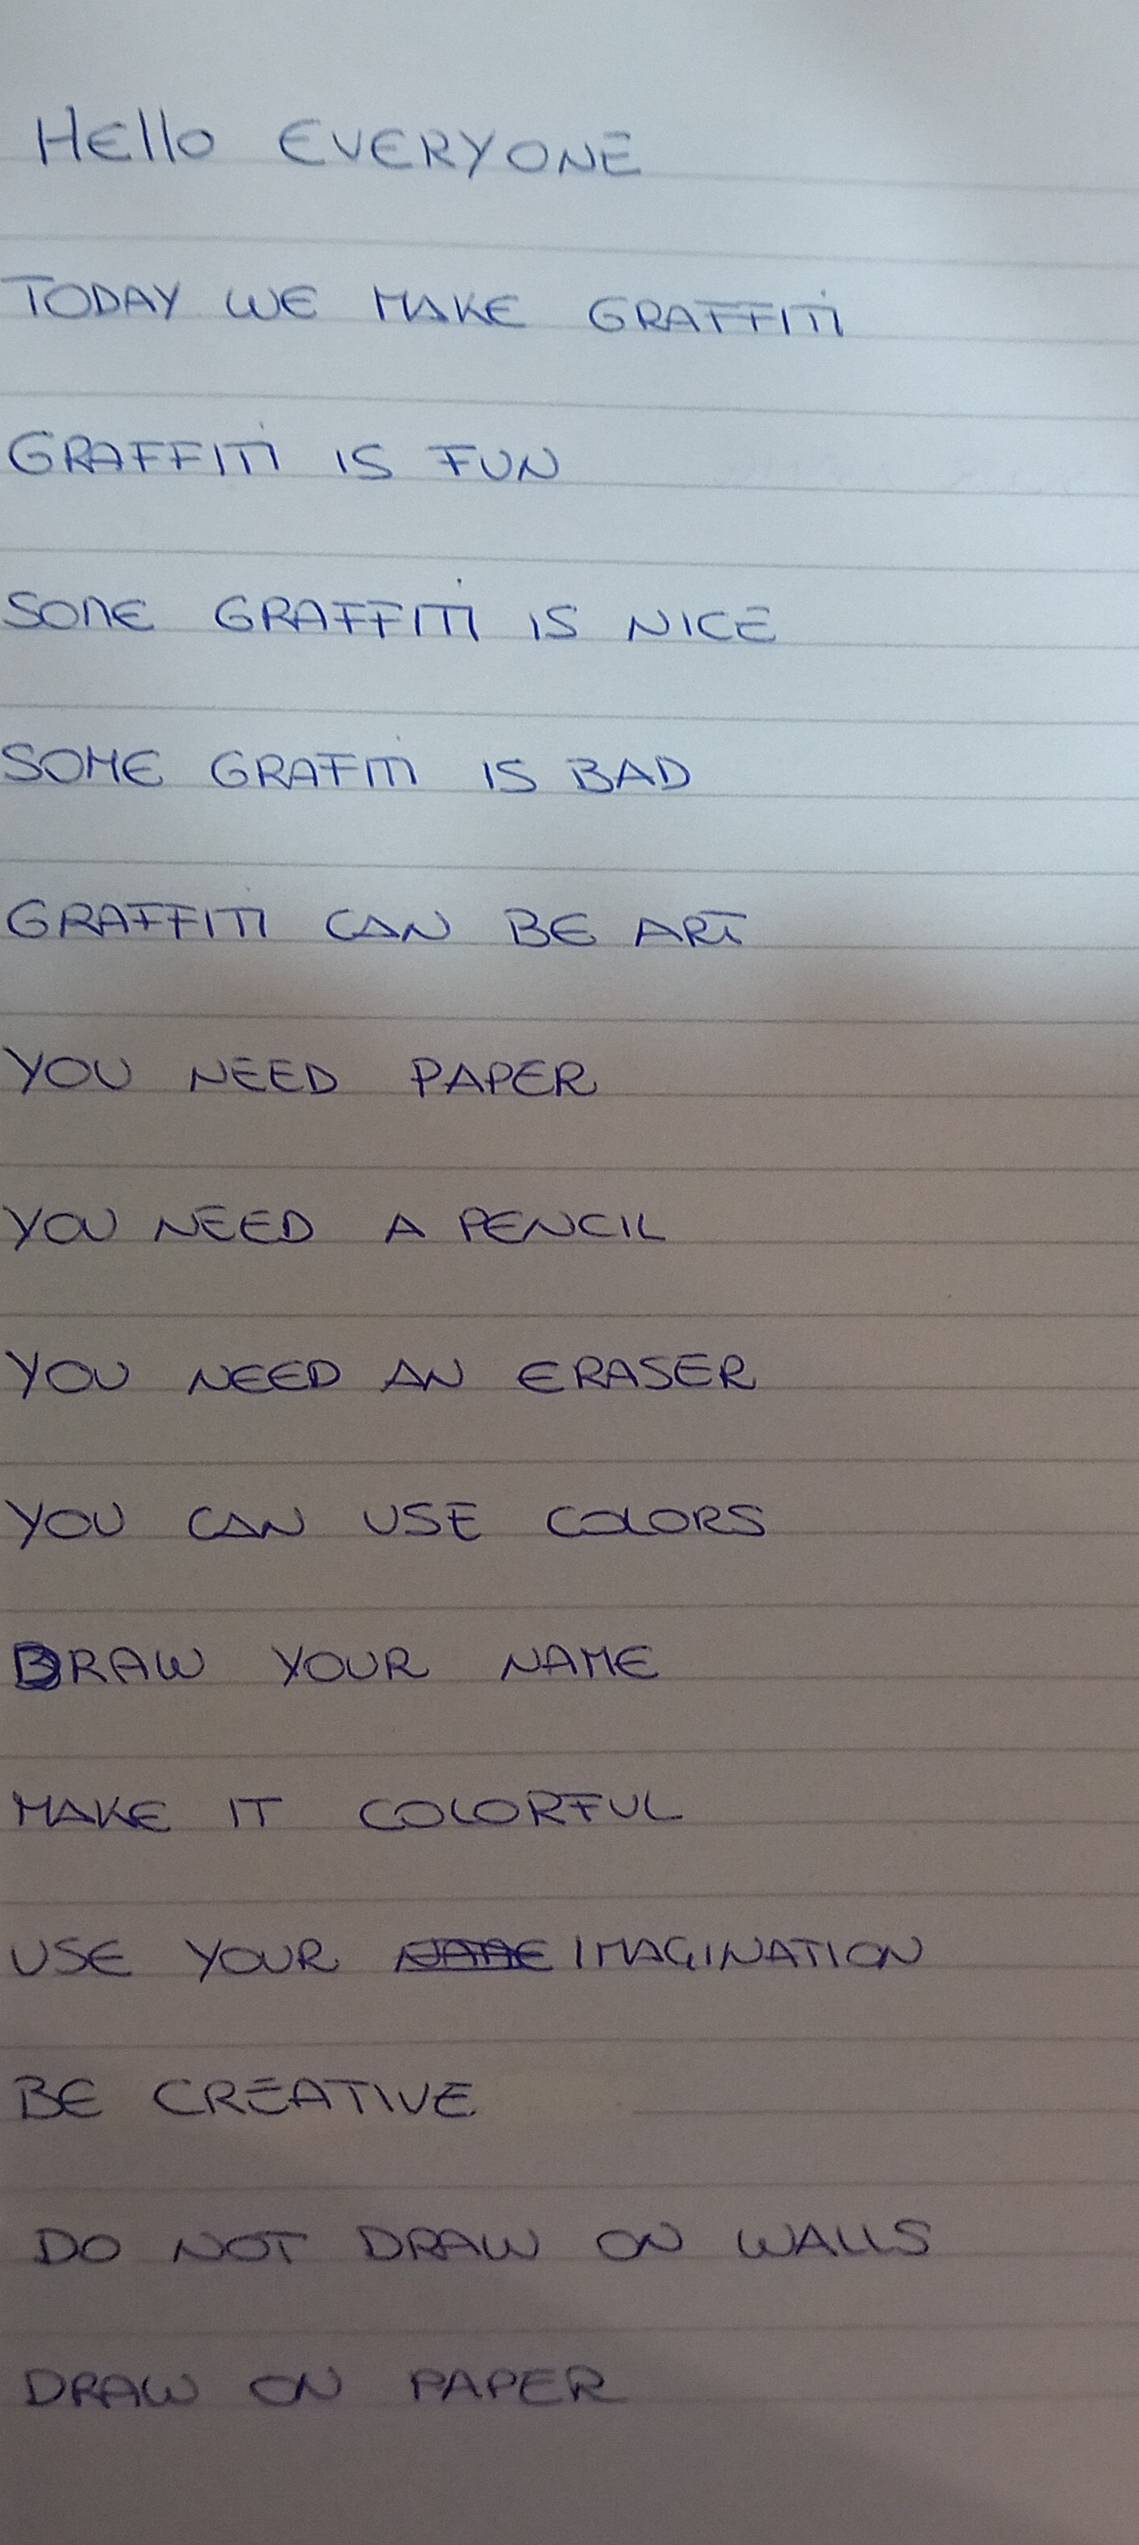 Hello EVERYONE
TODAY WE MAKE GRAFFITI
GRAFFITI IS FUN
SOME GRAFFITI IS NICE
SOME GRAFITI IS BAD
GRAFFITI CAN BE ART
YOU NEED PAPER
YOU NEED A PENCIL
YOU NEED AN ERASER
YOU CAN USE COLORS
DRAW YOUR NAME
MAKE IT COLORFUL
USE YOUR IMAGINATION
BE CREATIVE
DO NOT DRAW ON WALLS
DRAW ON PAPER